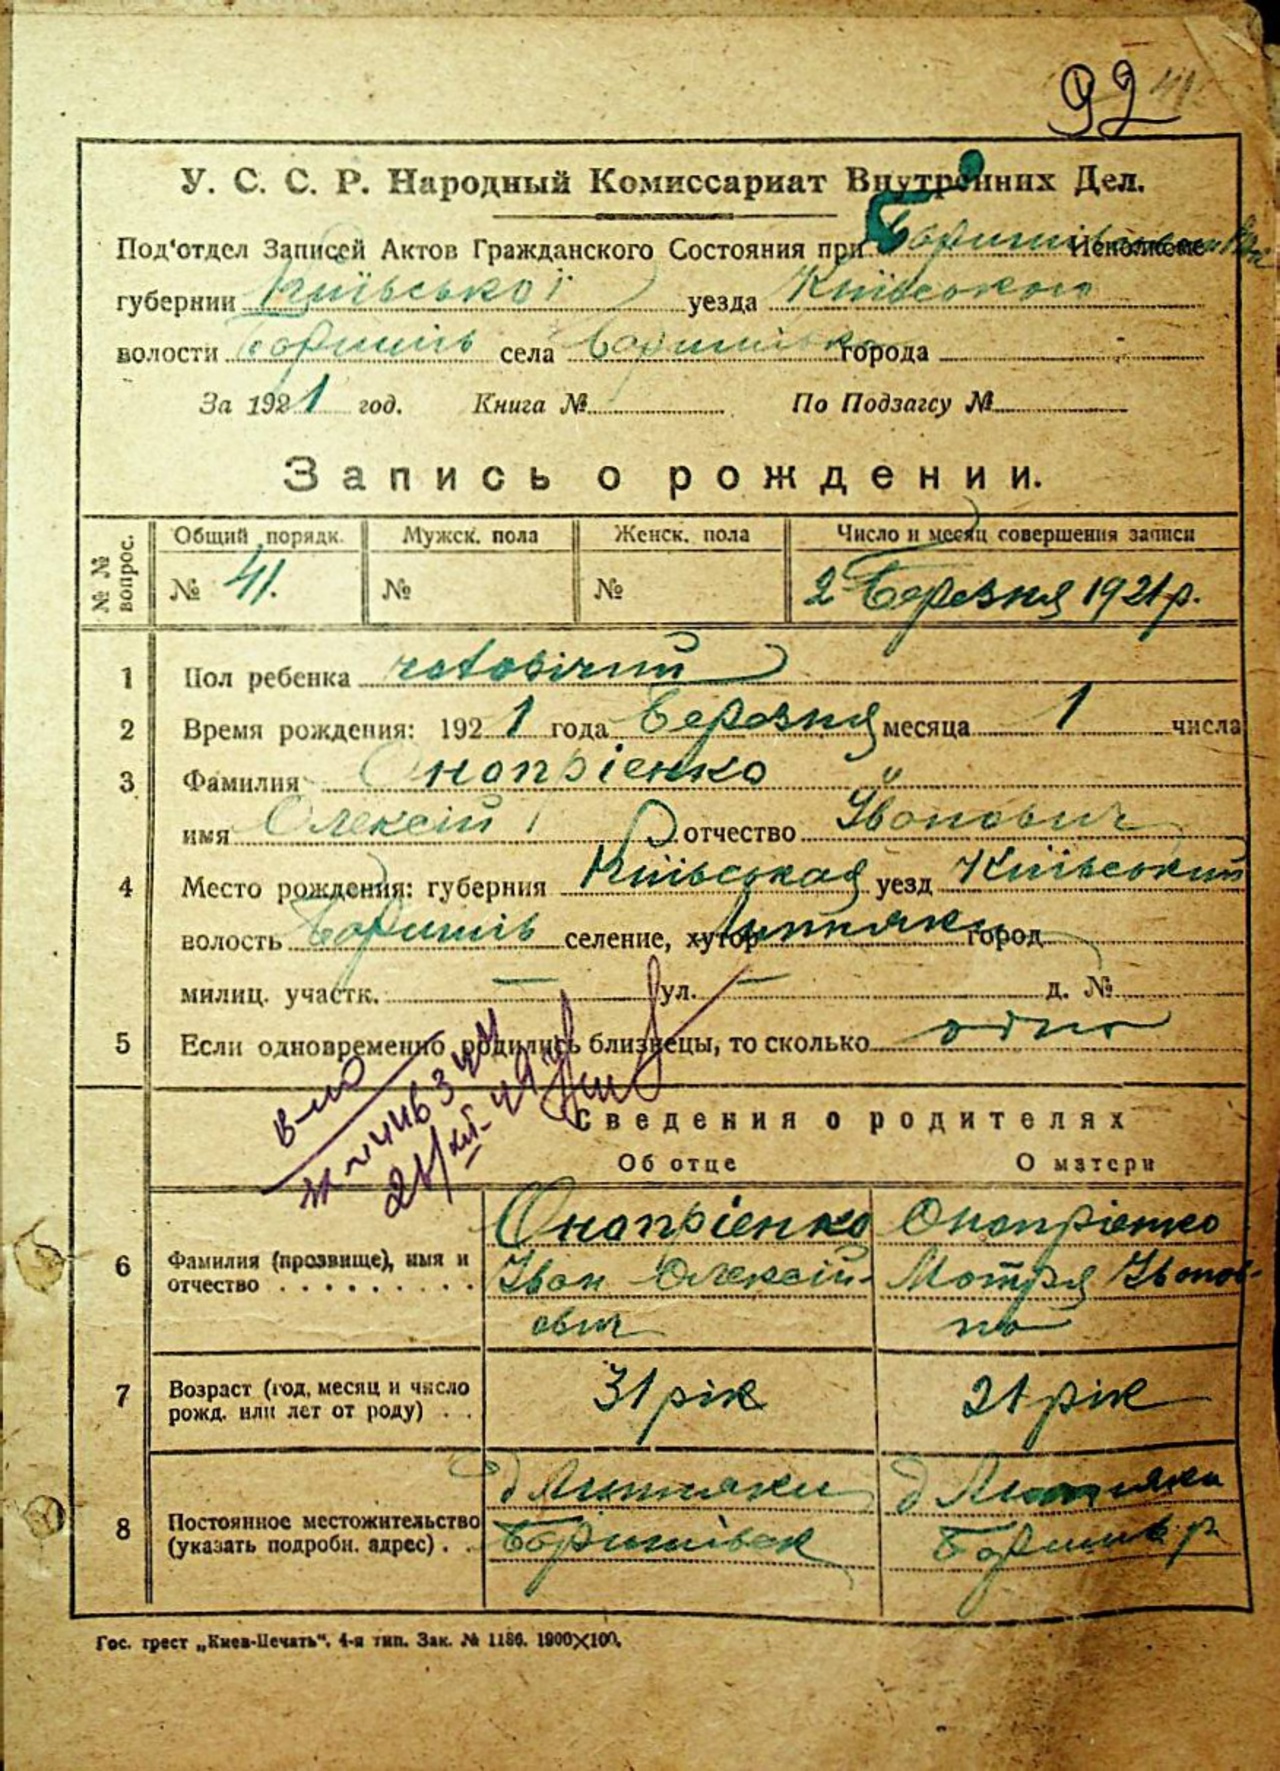 92
У. С. С. Р. Народный Комиссариат Внутренних Дел.
Под'отдел Записей Актов Гражданского Состояния при
губернии Київської уезда Київського
волости Бориспіль села города
За 1921 год. Книга № По Подзагсу №
Запись о рождении.
№ № вопрос. Общий порядк. Мужск. пола Женск. пола Число и месяц совершения записи
№ 41. № № 2 Березня 1921 р.
1 Пол ребенка чоловічий
2 Время рождения: 1921 года Березня месяца 1 числа
3 Фамилия Онопрієнко
имя Олексій отчество Іванович
4 Место рождения: губерния Київськая уезд Київський
волость Бориспіль селение, хутор город
милиц. участк. — ул. — д. №
5 Если одновременно родились близнецы, то сколько одно
Сведения о родителях
Об отце О матери
6 Фамилия (прозвище), имя и отчество . . . . . . . . .
Онопрієнко Онопрієнко
Іван Олексій- Мотря Іванов-
ович на
7 Возраст (год, месяц и число рожд. или лет от роду) . . 31 рік 21 рік
8 Постоянное местожительство (указать подробн. адрес) . .
Гос. трест „Киев-Печать". 4-я тип. Зак. № 1186. 1900×100.